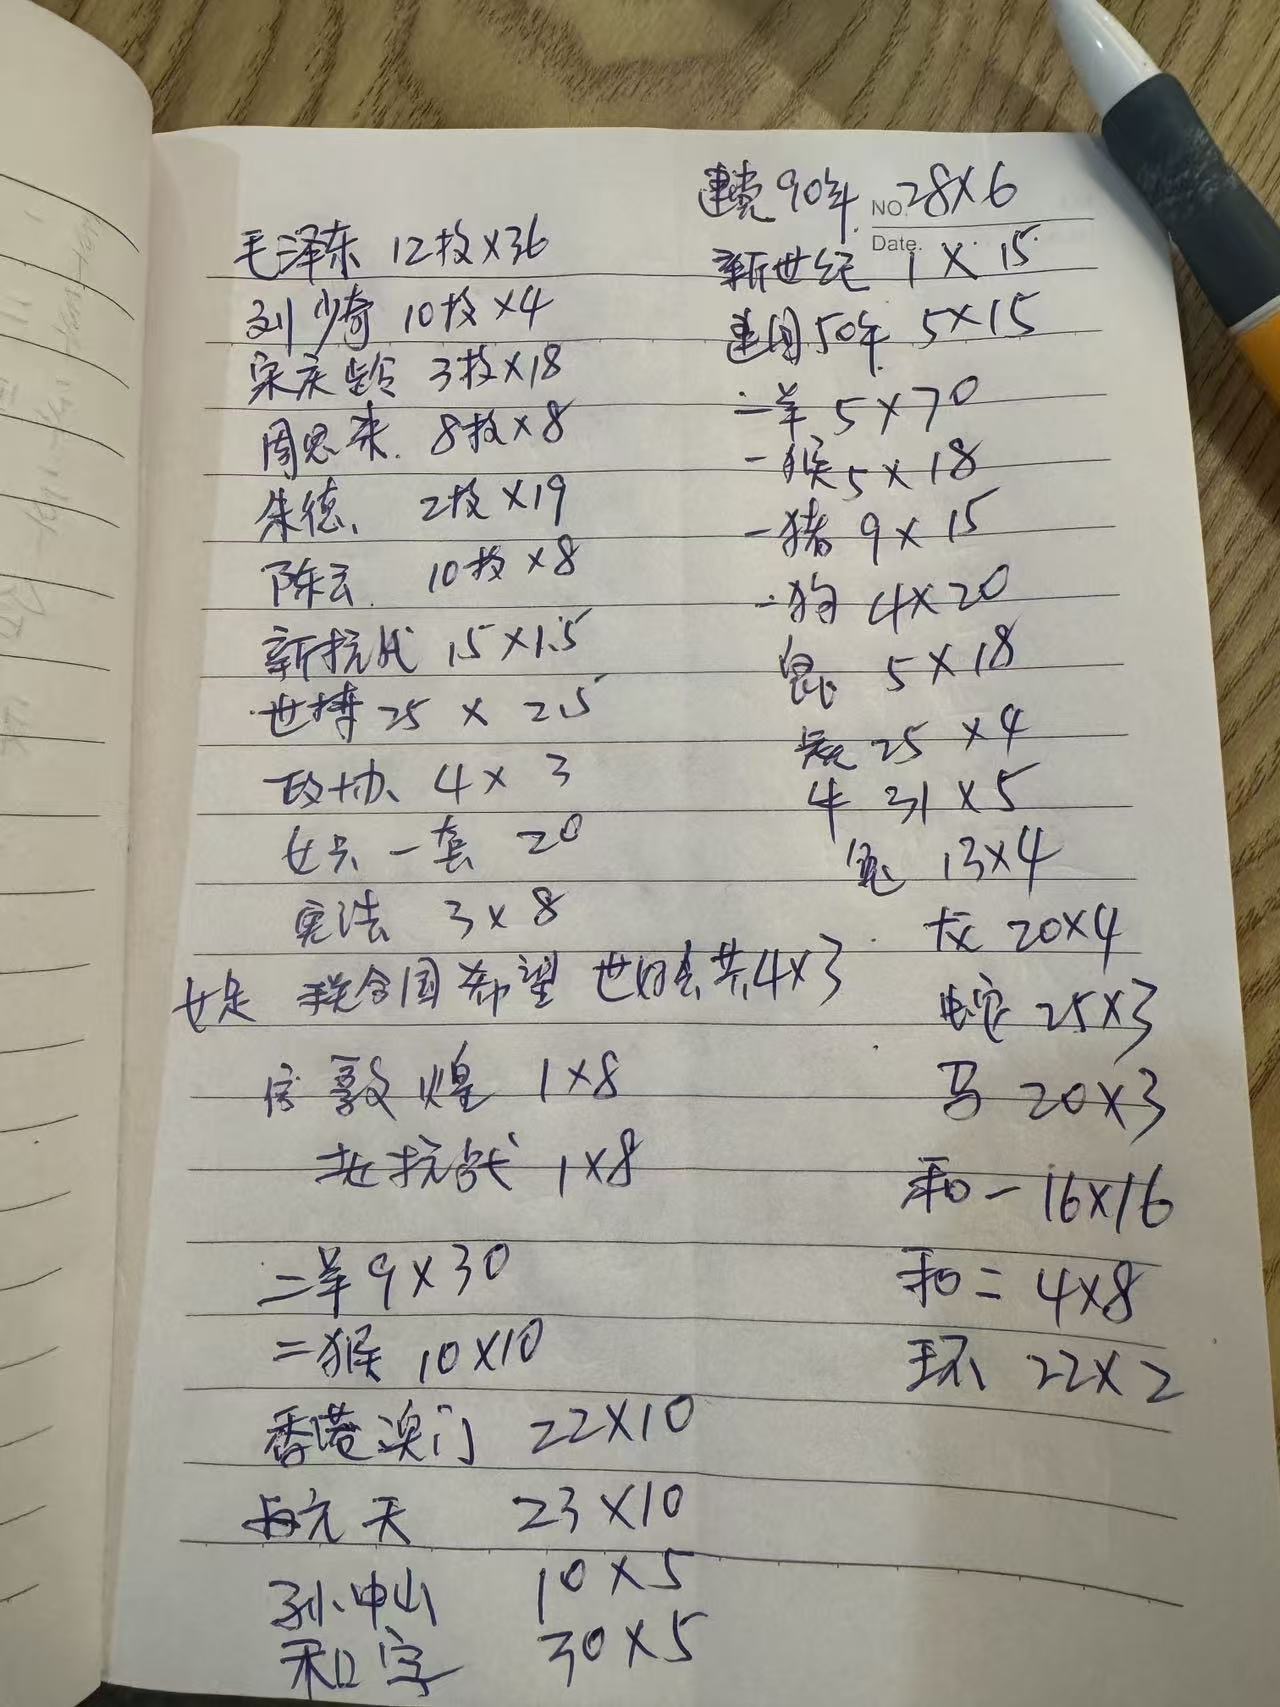 毛泽东 12枚×36
刘少奇 10枚×4
宋庆龄 3枚×18
周恩来. 8枚×8
朱德、 2枚×19
陈云. 10枚×8
新抗战 15×1.5
世博 25 × 2.5
政协、 4× 3
女只、一套 20
宪法 3×8
女足 联合国 希望 世妇会共4×3
敦煌 1×8
抗战 1×8
二羊 9×30
二猴 10×10
香港澳门 22×10
航天 23×10
孙中山 10×5
和字 30×5
建党90年. NO. 28×6
Date.
新世纪 1×15
建国50年 5×15
一羊 5×70
一猴 5×18
一猪 9×15
一狗 4×20
鼠 5×18
虎 25×4
牛 31×5
兔 13×4
龙 20×4
蛇 25×3
马 20×3
和一 16×16
和二 4×8
环 22×2